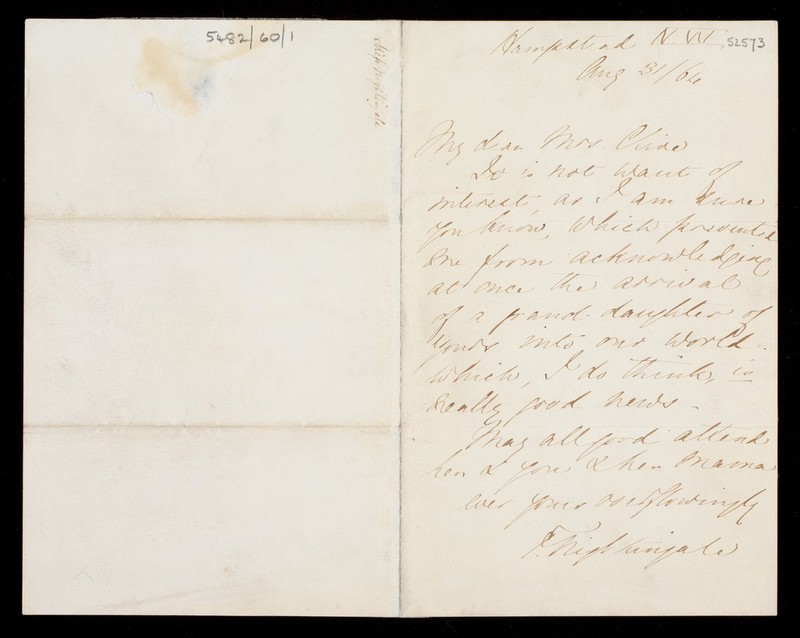 5482/60/1
Miss Nightingale
Hampstead N.W.
52573
Aug 31/64
My dear Mrs. Clive
It is not want of
interest, as I am sure
you know, which prevented
me from acknowledging
at once the arrival
of a grand daughter of
yours into our world -
which, I do think, is
really good news -
May all good attend
her & you & her Mama
ever yours overflowingly
F. Nightingale